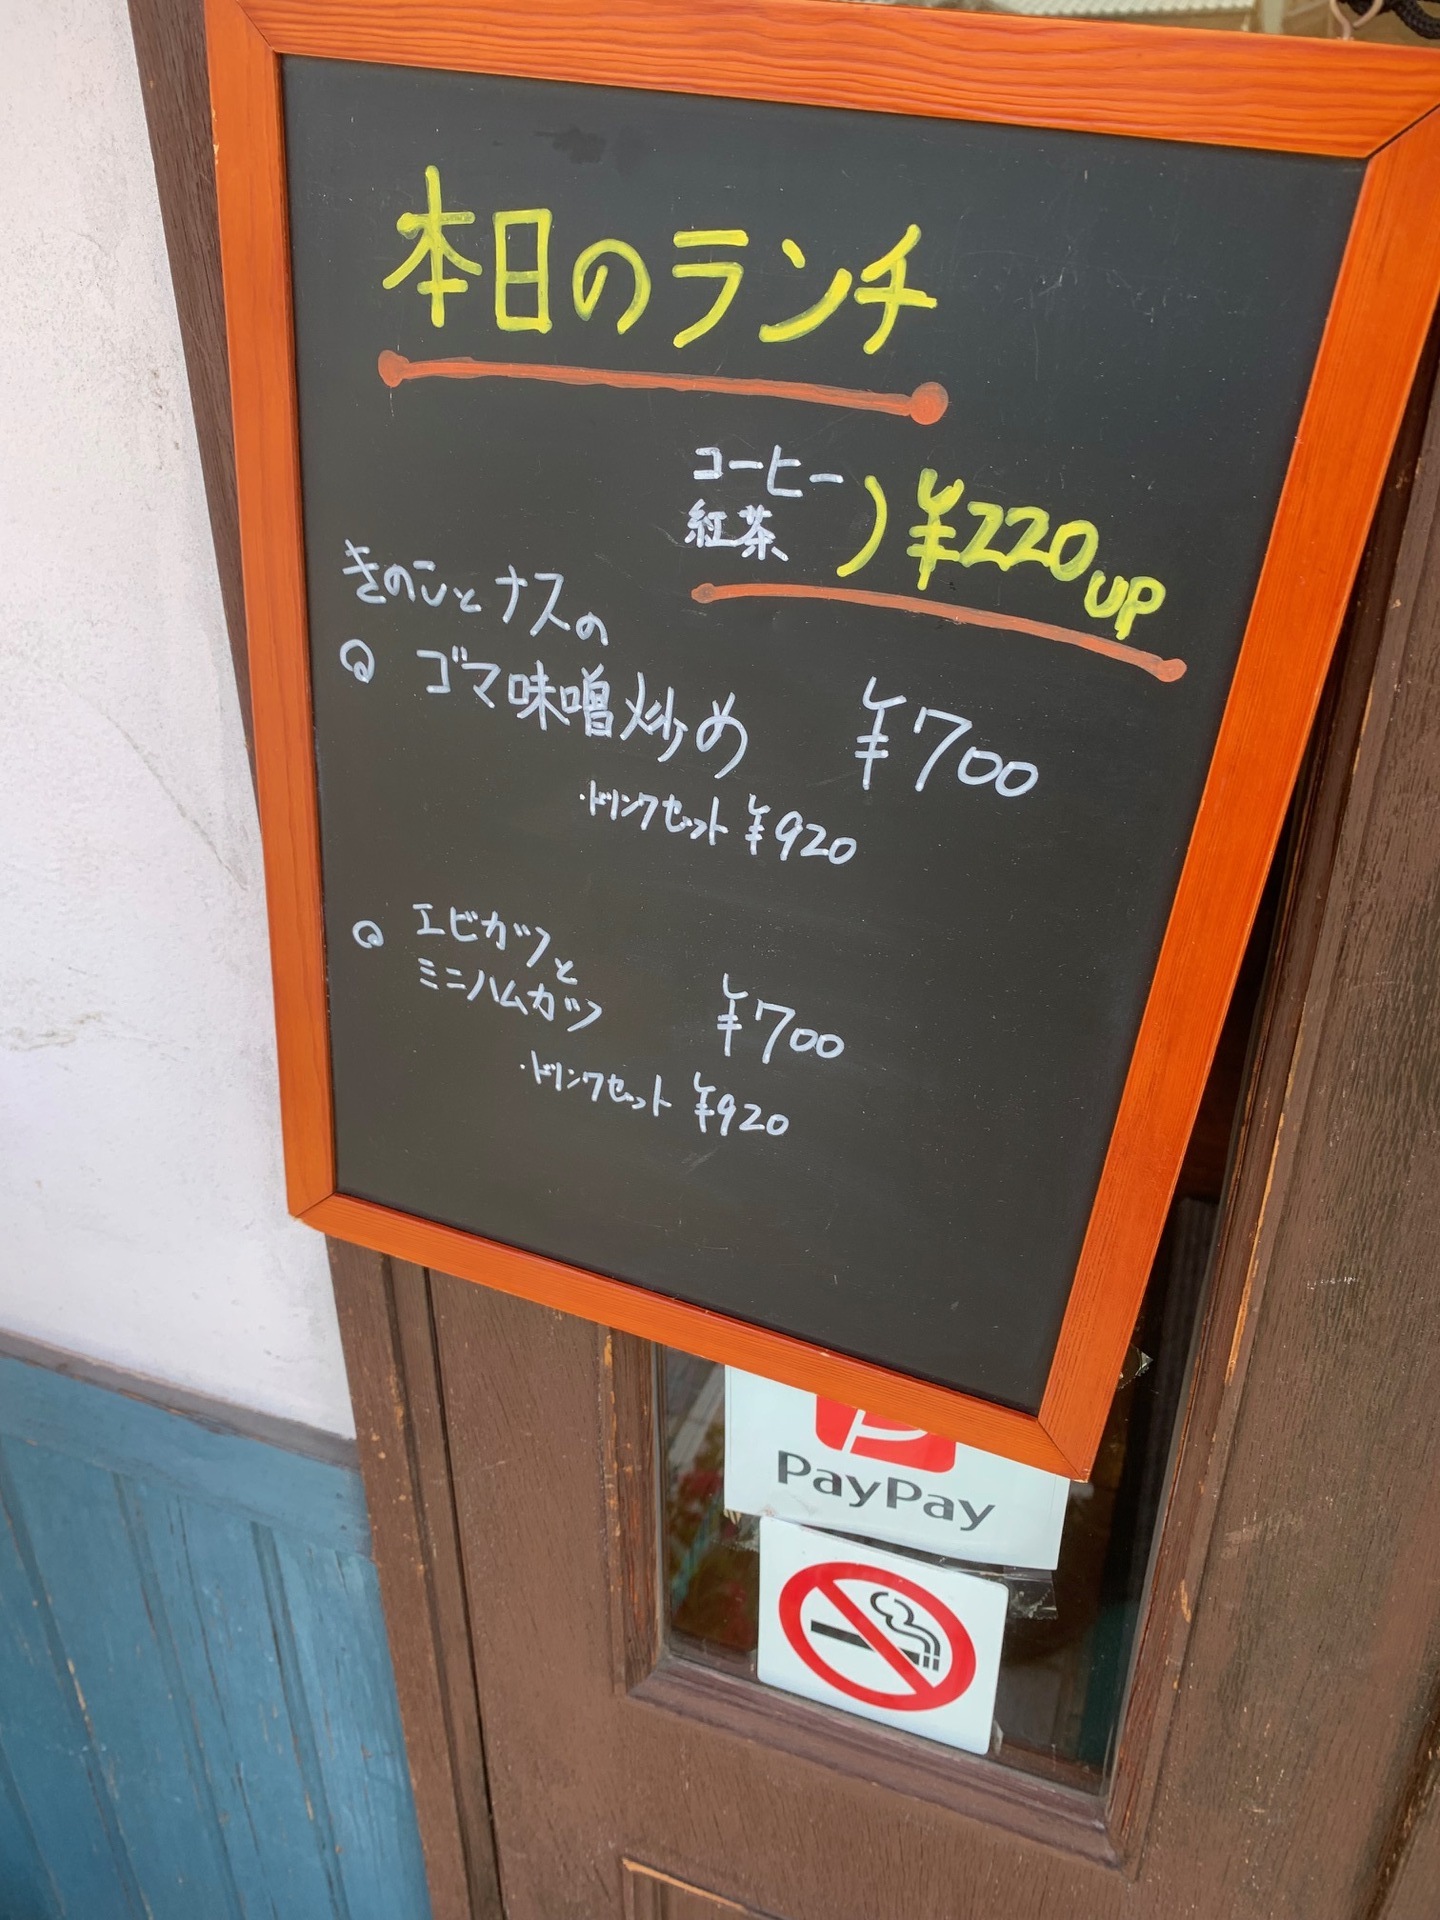 本日のランチ
コーヒー
紅茶
) ¥220UP
きのことナスの
ゴマ味噌炒め ¥700
・ドリンクセット ¥920
エビカツと
ミニハムカツ ¥700
・ドリンクセット ¥920
PayPay